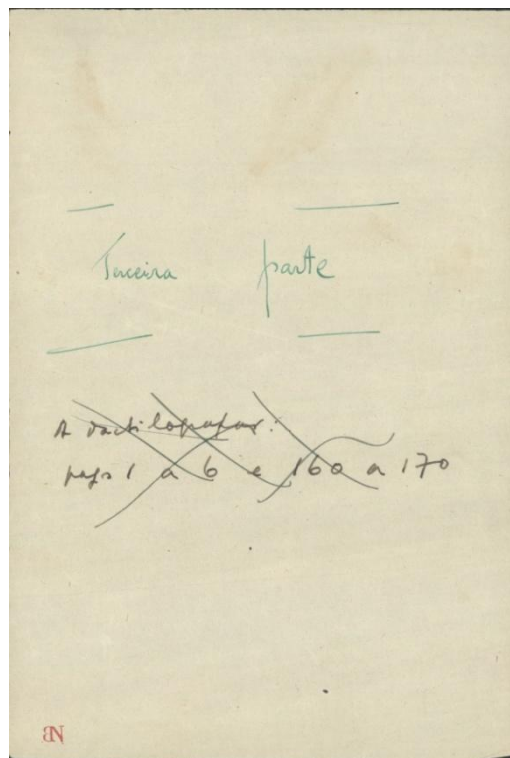 Terceira parte
A dactilografar:
pags 1 a 6 e 160 a 170
BN